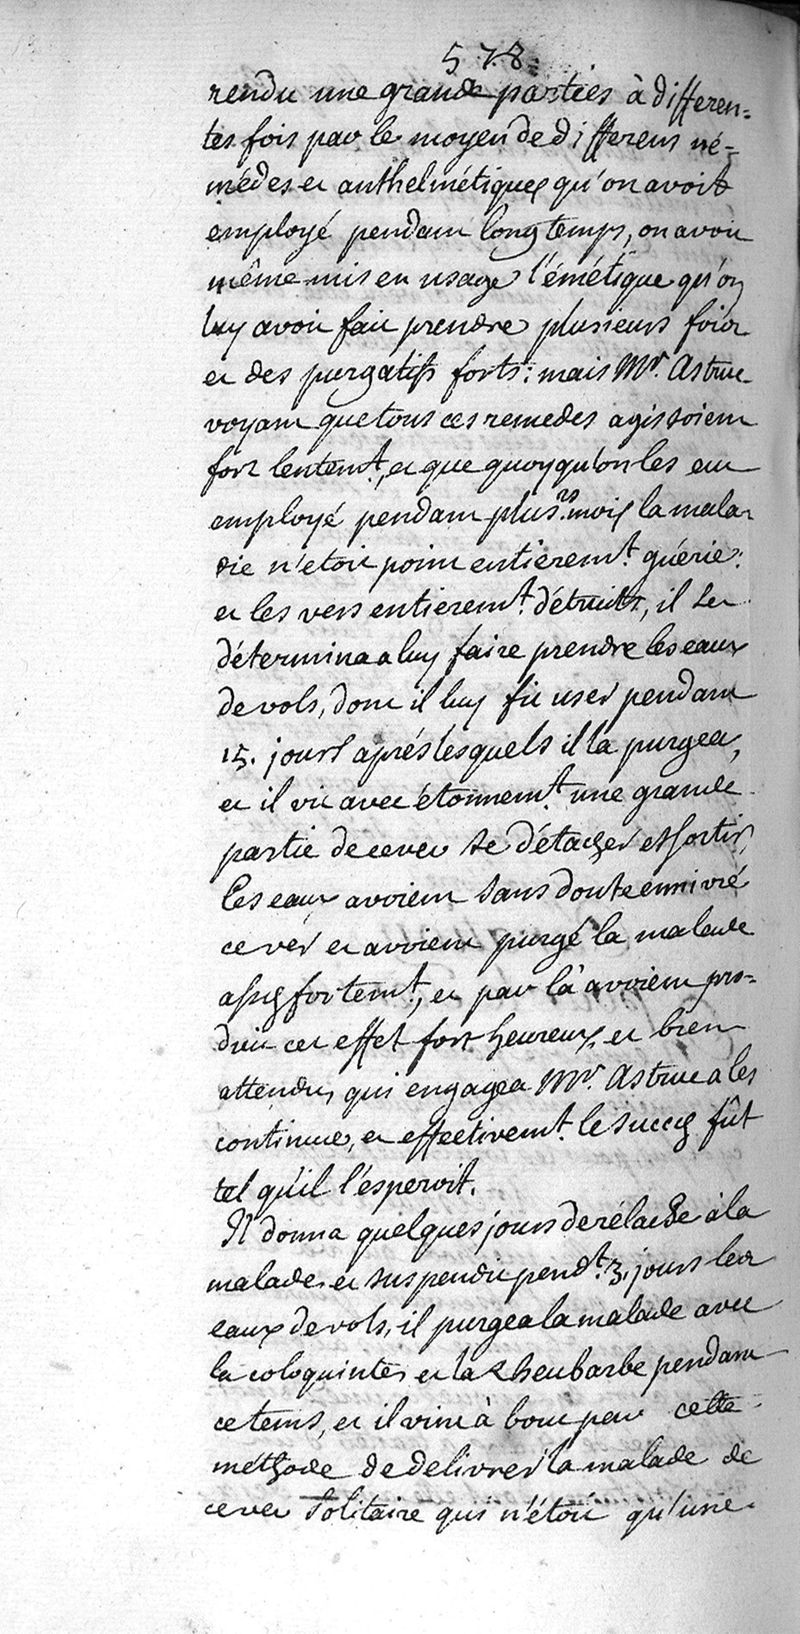 578.
rendu une grande parties à differen=
tes fois par le moyen de differens ré=
médes et anthelmétiques qu'on avoit
employé pendant longtemps, on avoit
même mis en usage l'émétique qu'on
luy avoit fait prendre plusieurs fois
et des purgatifs forts: mais Mr. Astruc
voyant que tous ces remedes agissoient
fort lentemt., et que quoyqu'on les eut
employé pendant plusrs. mois la mala-
die n'etoit point entieremt. guérie:
et les vers entieremt. détruits, il se
détermina a luy faire prendre les eaux
de vols, dont il luy fit user pendant
15. jours aprés lesquels il la purgea,
et il vit avec étonnemt. une grande
partie de ce ver se détacher et sortir,
les eaux avoient sans doute ennivré
ce ver et avoient purgé la malade
assés fortemt., et par là avoient pro=
duit cet effet fort heureux, et bien
attendu, qui engagea Mr. Astruc a les
continuer, et effectivemt. le succés fût
tel qu'il l'esperoit.
Il donna quelques jours de rélache à la
malade et suspendit pendt. 3. jours les
eaux de vols, il purgea la malade avec
la coloquinte et la Rheubarbe pendant
ce tems, et il vint à bout par cette
méthode de delivrer la malade de
ce ver solitaire qui n'étoit qu'une